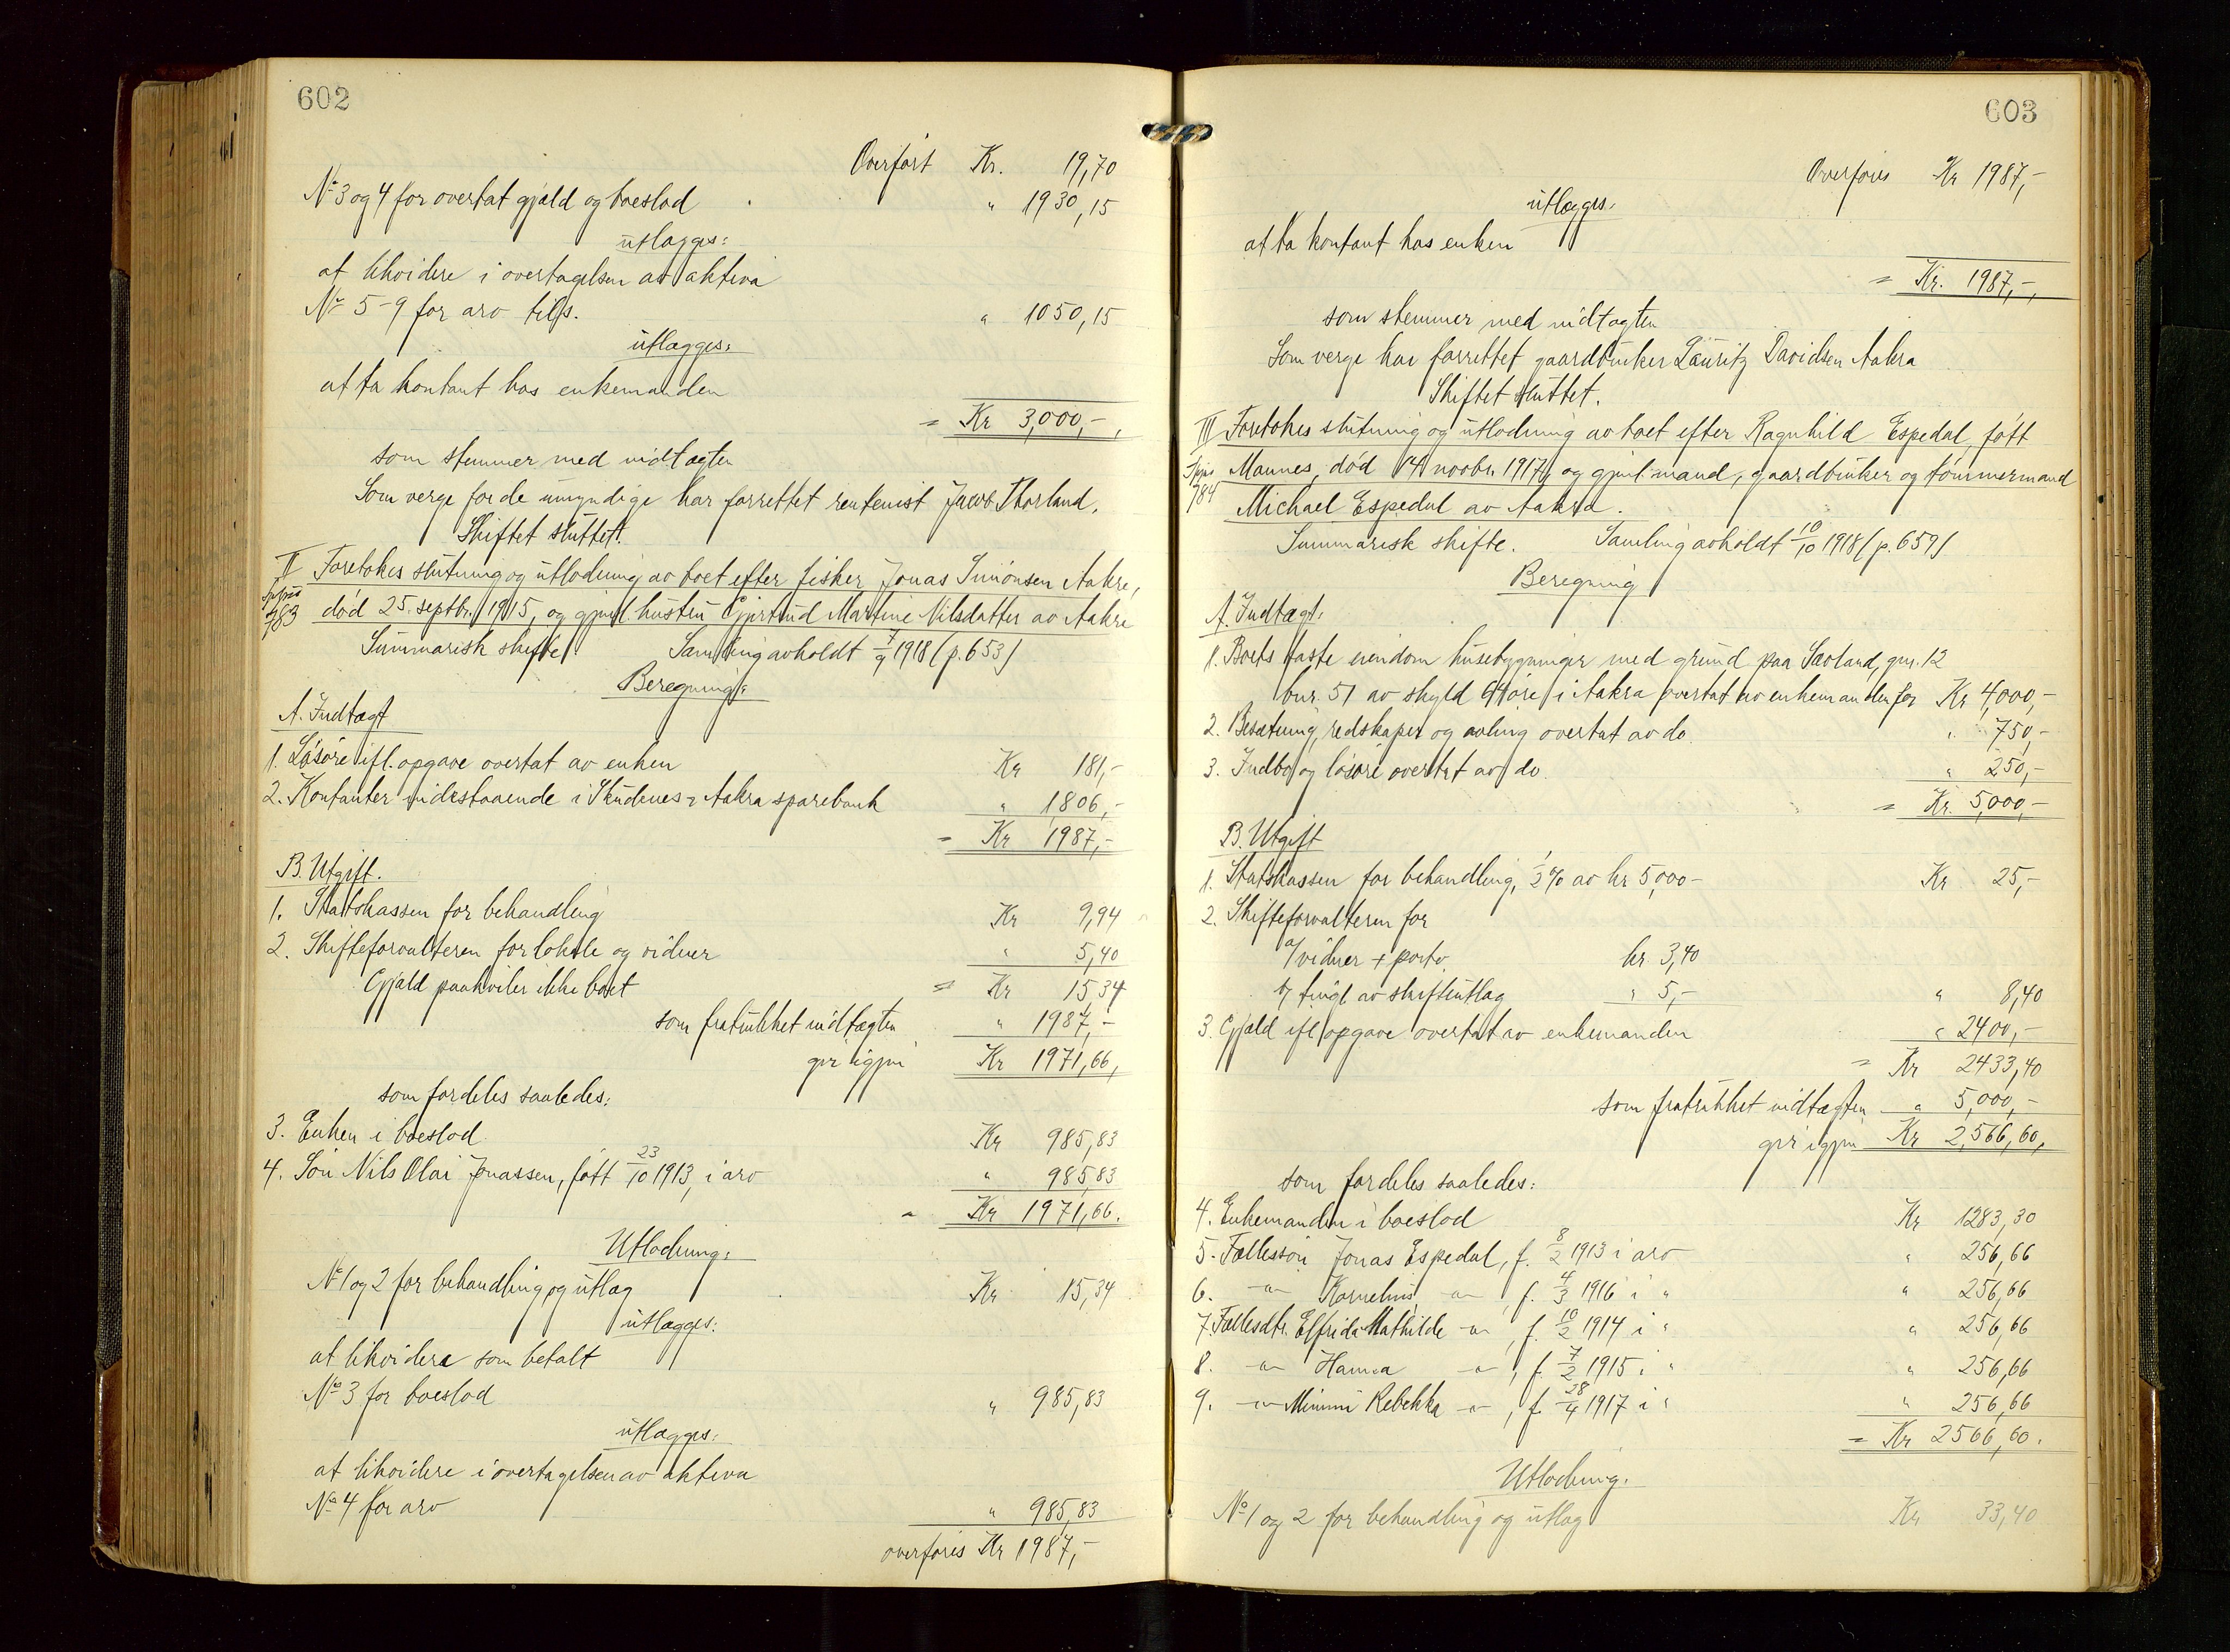 602
Overført Kr. 19,70
No 3 og 4 for overtat gjæld og boeslod " 1930,15
utlægges:
at likvidere i overtagelsen av aktiva
No 5-9 for arv tils. " 1050,15
utlægges:
at ta kontant hos enkemanden
= Kr 3,000,-
som stemmer med indtægten
Som verge for de umyndige har forrettet rentenist Jacob Thorland.
Skiftet sluttet.
II Foretokes slutning og utlodning av boet efter fisker Jonas Simonsen Aakre,
783 død 25. septbr. 1915, og gjenl. hustru Gjertrud Martine Nilsdatter av Aakre
Summarisk skifte. Samling avholdt 7/9 1918 (p. 653)
Beregning:
A. Indtægt
1. Løsøre ifl. opgave overtat av enken Kr 181,-
2. Kontanter indestaaende i Skudenes & Aakra sparebank " 1806,-
= Kr 1987,-
B. Utgift.
1. Statskassen for behandling Kr 9,94
2. Skifteforvalteren for lokale og vidner " 5,40
Gjæld paahviler ikke boet = Kr 15,34
som fratrukket indtægten " 1987,-
gir igjen Kr 1971,66,
som fordeles saaledes:
3. Enken i boeslod Kr 985,83
4. Søn Nils Olai Jonassen, født 23/10 1913, i arv " 985,83
= Kr 1971,66.
Utlodning:
No 1 og 2 for behandling og utlæg Kr 15,34
utlægges:
at likvidere som betalt
No 3 for boeslod " 985,83
utlægges:
at likvidere i overtagelsen av aktiva
No 4 for arv " 985,83
overføres Kr 1987,-
603
Overføres Kr 1987,-
utlægges:
at ta kontant hos enken
= Kr. 1987,-,
som stemmer med indtægten
Som verge har forrettet gaardbruker Lauritz Davidsen Aakra
Skiftet sluttet.
III Foretokes slutning og utlodning av boet efter Ragnhild Espedal, født
Mannes, død 14 novbr. 1917, og gjenl. mand, gaardbruker og tømmermand
784 Michael Espedal av Aakra.
Summarisk skifte. Samling avholdt 10/10 1918 (p. 659)
Beregning
A. Indtægt:
1. Boets faste eiendom husebygninger med grund paa Sævland, gnr. 12
bnr. 51 av skyld 64 øre i Aakra overtat av enkemanden for Kr 4,000,-
2. Besætning, redskaper og avling overtat av do. " 750,-
3. Indbo og løsøre overtat av do. " 250,-
= Kr. 5,000,-
B. Utgift
1. Statskassen for behandling, 1/2 % av kr 5,000- Kr 25,-
2. Skifteforvalteren for
a/ vidner + porto kr. 3,40
b/ tingl. av skifteutlæg " 5,- " 8,40
3. Gjæld ifl. opgave overtat av enkemanden " 2400,-
= Kr 2433,40
som fratrukket indtægten " 5,000,-
gir igjen Kr 2,566,60,
som fordeles saaledes:
4. Enkemanden i boeslod Kr 1283,30
5. Fællessøn Jonas Espedal, f. 8/2 1913 i arv " 256,66
6. -"- Kornelius -"- , f. 4/3 1916 i " " 256,66
7. Fællesdtr. Elfrida Mathilde -"- , f. 10/2 1914 i " " 256,66
8. -"- Hanna -"- , f. 7/2 1915 i " " 256,66
9. -"- Mimmi Rebekka -"- , f. 28/4 1917 i " " 256,66
= Kr 2566,60.
Utlodning.
No 1 og 2 for behandling og utlæg Kr 33,40